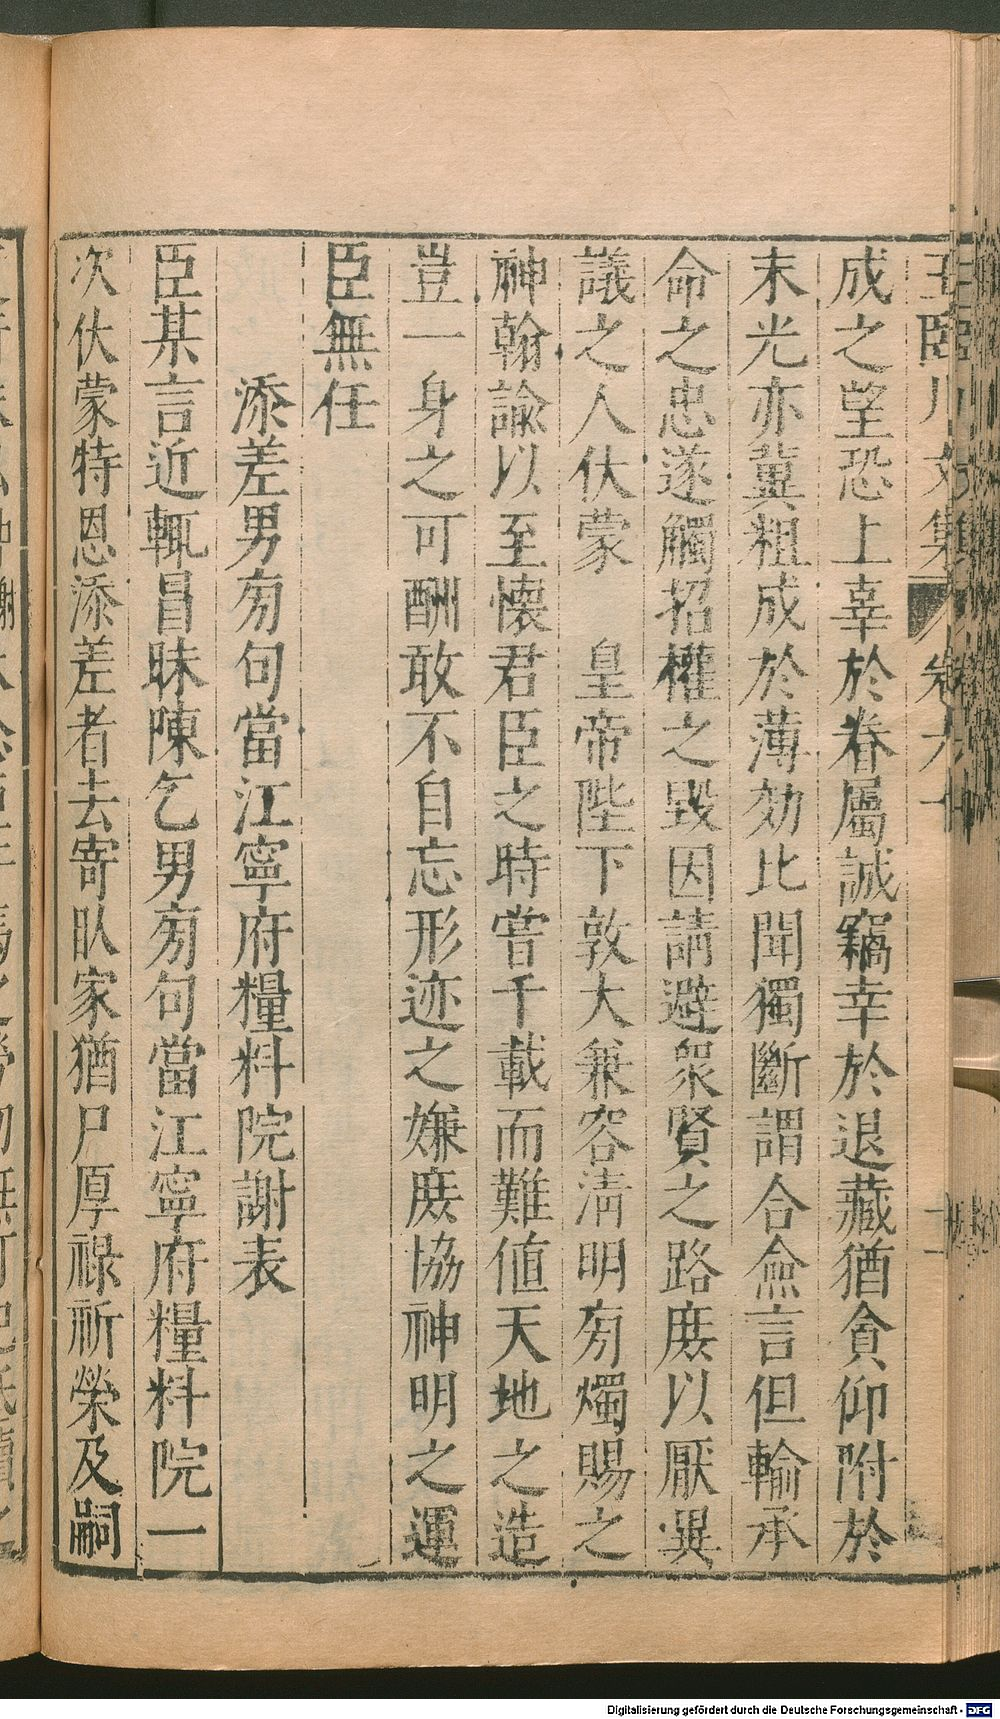 成之望恐上辜於眷屬誠竊幸於退藏猶貪仰附於
末光亦冀粗成於薄効比聞獨斷謂合僉言但輸承
命之忠遂觸招權之毀因請避衆賢之路庶以厭異
議之人伏蒙　皇帝陛下敦大兼容清明旁燭賜之
神翰諭以至懷君臣之時嘗千載而難値天地之造
豈一身之可酬敢不自忘形迹之嫌庶協神明之運
臣無任
添差男旁句當江寧府糧料院謝表
臣某言近輒昌昧陳乞男旁句當江寧府糧料院一
次伏蒙特恩添差者去寄臥家猶尸厚祿祈榮及嗣
Digitalisierung gefördert durch die Deutsche Forschungsgemeinschaft - DFG